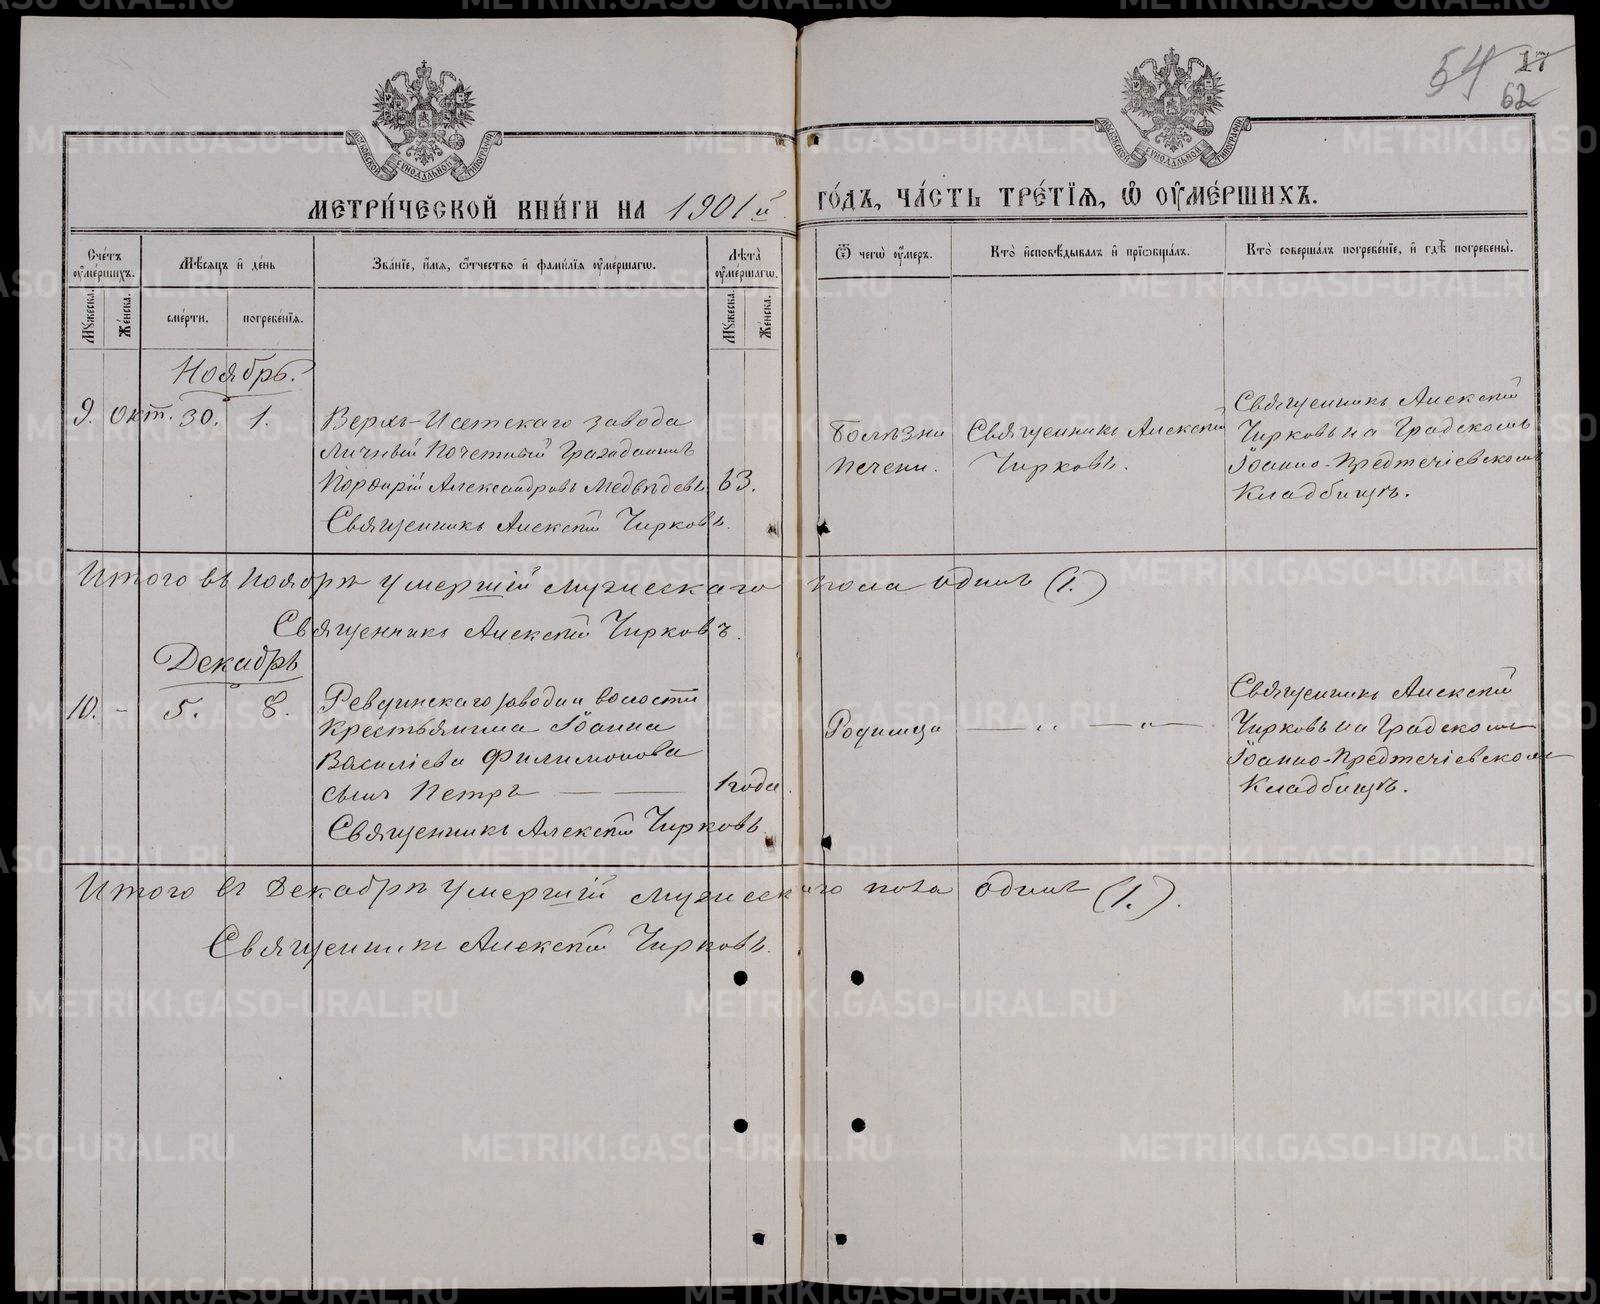 54 17
62
МОСКОВСКОЙ СѴНОДАЛЬНОЙ ТИПОГРАФІИ
МОСКОВСКОЙ СѴНОДАЛЬНОЙ ТИПОГРАФІИ
МЕТРИ́ЧЕСКОЙ КНИ́ГИ НА 1901й ГО́ДЪ, ЧА́СТЬ ТРЕ́ТІѦ, Ѡ҆ ОУ҆МЕ́РШИХЪ.
Сче́тъ оу҆ме́ршихъ.
Мꙋ́жеска.
Же́нска.
Мѣ́сѧцъ и҆ де́нь
сме́рти.
погребе́нїѧ.
Зва́нїе, и҆́мѧ, ѻ҆́тчество и҆ фами́лїѧ оу҆ме́ршагѡ.
Лѣ́та оу҆ме́ршагѡ.
Мꙋ́жеска.
Же́нска.
Ѿ чегѡ̀ оу҆́меръ.
Кто̀ и҆сповѣ́дывалъ и҆ прїѻбща́лъ.
Кто̀ соверша́лъ погребе́нїе, и҆ гдѣ̀ погребены̀.
Ноябрь.
9. Окт. 30. 1.
Верхъ-Исетскаго завода
Личный Почетный Гражданинъ
Порфирій Александровъ Медвѣдевъ. 63.
Священникъ Алексій Чирковъ.
Болѣзни
печени.
Священникъ Алексій
Чирковъ.
Священникъ Алексій
Чирковъ на Градскомъ
Іоанно-Предтечіевскомъ
Кладбищѣ.
Итого въ Ноябрѣ умершій мужескаго пола одинъ (1.)
Священникъ Алексій Чирковъ.
Декабрь
10. - 5. 8.
Ревдинскаго завода и волости
Крестьянина Іоанна
Василіева Филимонова
сынъ Петръ — — 1 года.
Священникъ Алексій Чирковъ.
Родимца
— „ — „ —
Священникъ Алексій
Чирковъ на Градскомъ
Іоанно-Предтечіевскомъ
Кладбищѣ.
Итого въ Декабрѣ умершій мужескаго пола одинъ (1.).
Священникъ Алексій Чирковъ.
METRIKI.GASO-URAL.RU